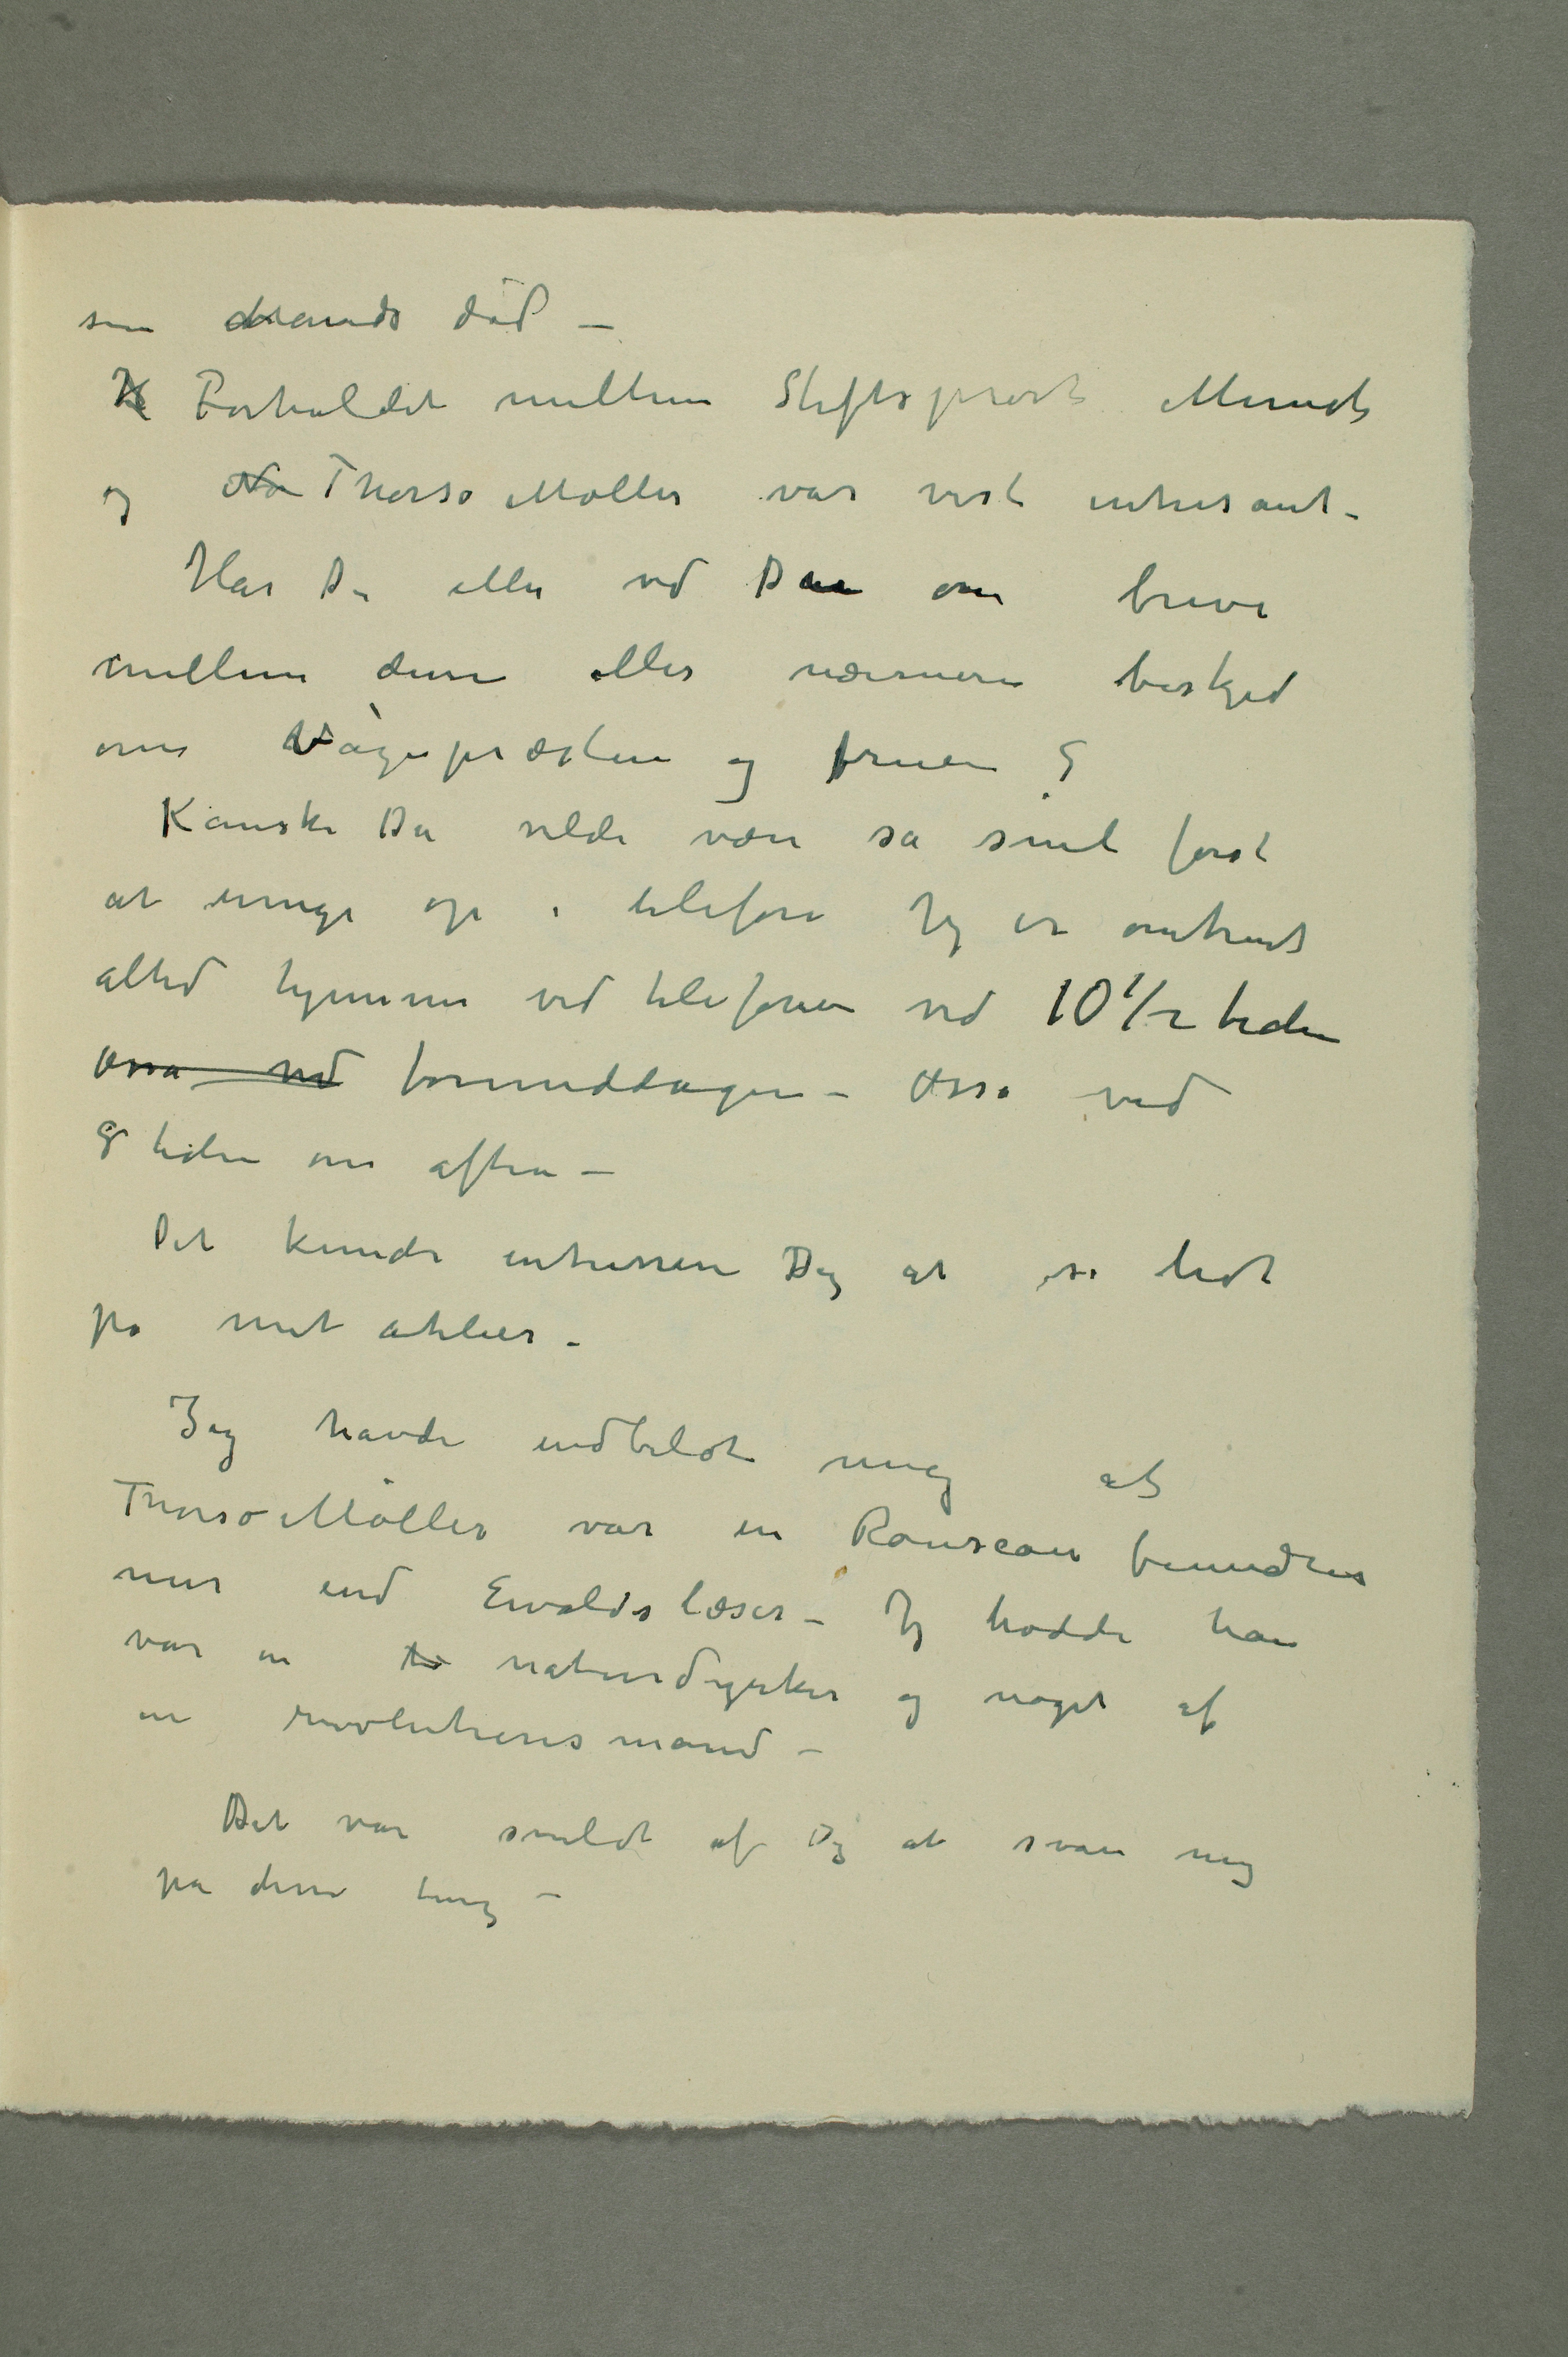 sin Mands död –
Forholdet mellem Stiftsprost Munch
og Thorsø Møller var vist intresant –
Har Du eller ved Du om breve
mellem dem eller nærmere besked
om Vågepræsten og fruen ?
Kanske Du vilde være så snil først
at ringe op i telefon Jeg er omtrent
altid hjemme ved telefonen ved 10 1/2 tiden
Osså ved formiddagen – Osså ved
9 tiden om aften –
Det kunde intressere Dig at se lidt
på mit atelier –
Jeg havde indbildt mig at
Thorsø Møller var en Rouseau beundrer
mer end Ewaldslæser – Jeg trodde han
var en naturdyrker og noget af
en revolutionsmand –
Det var snildt af Dig at svare mig
på disse ting –